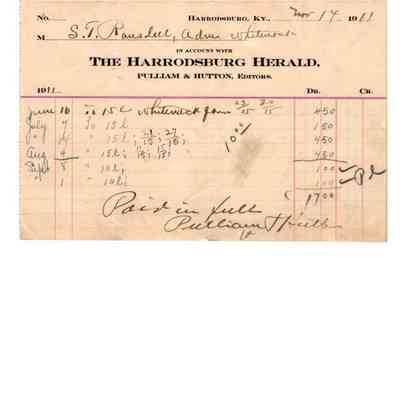 No. HARRODSBURG, KY., Nov 14 1911
M S. T. Ransdell, Adm Whitenack
IN ACCOUNT WITH
THE HARRODSBURG HERALD,
PULLIAM & HUTTON, EDITORS.
1911 DR. CR.
June 16 To 15 l Whitenack farm 23/15 30/15 450
July 7 To 15 l 150
" 14 " 15 l ; 21/15 ; 27/15 ; 450
Aug 4 " 15 l ; 450
Sept 8 " 10 l, 100
1 " 10 l 100
10%
Pd
1700
Paid in full
Pulliam & Hutton